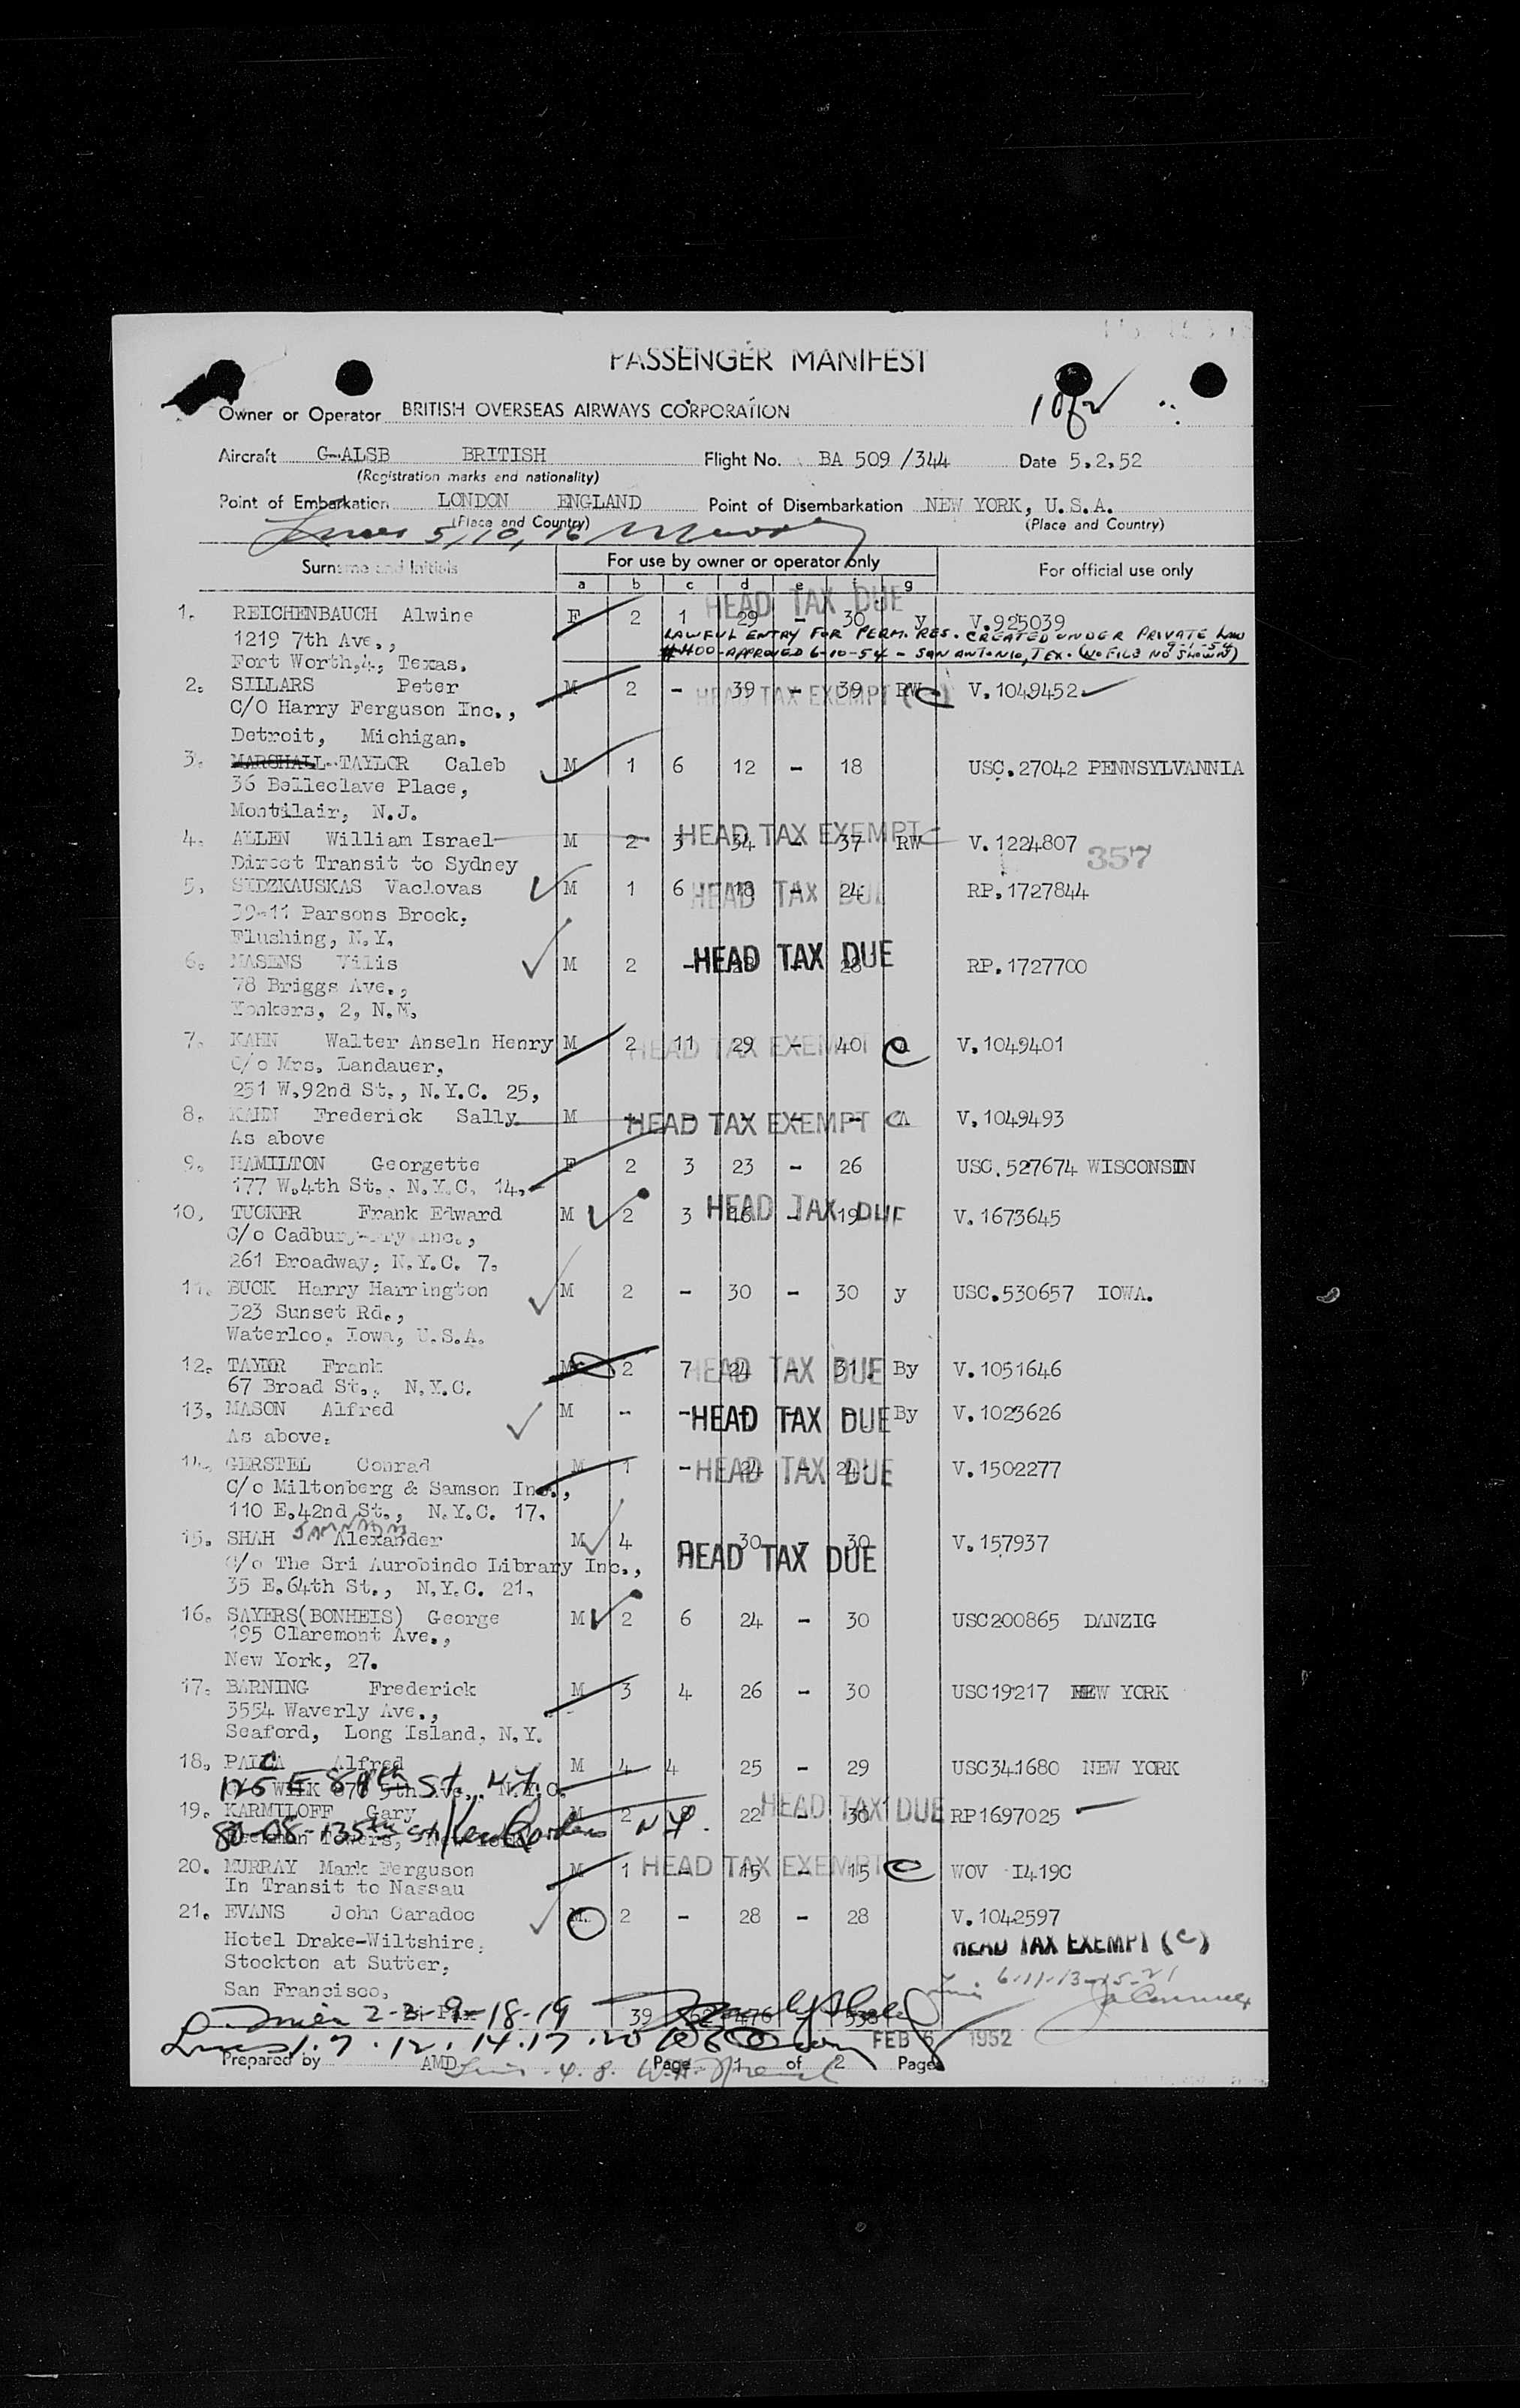 PASSENGER MANIFEST
Owner or Operator BRITISH OVERSEAS AIRWAYS CORPORATION
Aircraft G-ALSB BRITISH Flight No. BA 509/344 Date 5.2.52
(Registration marks and nationality)
Point of Embarkation LONDON ENGLAND Point of Disembarkation NEW YORK, U.S.A.
(Place and Country) (Place and Country)
5, 10, 16
Surname and Initials For use by owner or operator only For official use only
a b c d e f g
HEAD TAX DUE
1. REICHENBAUCH Alwine F 2 1 29 - 30 y V.925039
1219 7th Ave., LAWFUL ENTRY FOR PERM. RES. CREATED UNDER PRIVATE LAW
Fort Worth,4, Texas. #400-APPROVED 6-10-54 - SAN ANTONIO, TEX. (NO FILE NO SHOWN) 9-1-54
2. SILLARS Peter M 2 - 39 - 39 RW V.1049452
HEAD TAX EXEMPT (C)
C/O Harry Ferguson Inc.,
Detroit, Michigan.
3. MARSHALL-TAYLOR Caleb M 1 6 12 - 18 USC.27042 PENNSYLVANNIA
36 Belleclave Place,
Montilair, N.J.
HEAD TAX EXEMPT C
4. ALLEN William Israel M 2 3 34 - 37 RW V.1224807
Direct Transit to Sydney 357
5. SIDZKAUSKAS Vaclovas M 1 6 18 - 24 RP.1727844
HEAD TAX DUE
39-11 Parsons Brock,
Flushing, N.Y.
6. MASENS Vilis M 2 - - 28 RP.1727700
HEAD TAX DUE
78 Briggs Ave.,
Yonkers, 2, N.M.
7. KAHN Walter Anseln Henry M 2 11 29 - 40 V.1049401
HEAD TAX EXEMPT C
C/o Mrs. Landauer,
251 W.92nd St., N.Y.C. 25,
8. KAHN Frederick Sally M - - - - - A V.1049493
HEAD TAX EXEMPT C
As above
9. HAMILTON Georgette F 2 3 23 - 26 USC.527674 WISCONSIN
177 W.4th St., N.Y.C. 14,
10. TUCKER Frank Edward M 2 3 16 - 19 V.1673645
HEAD TAX DUE
C/o Cadbury-Fry Inc.,
261 Broadway, N.Y.C. 7.
11. BUCK Harry Harrington M 2 - 30 - 30 y USC.530657 IOWA.
323 Sunset Rd.,
Waterloo, Iowa, U.S.A.
12. Frank M 2 7 24 - 31 By V.1051646
HEAD TAX DUE
67 Broad St., N.Y.C.
13. MASON Alfred M - - - - - By V.1023626
HEAD TAX DUE
As above.
14. GERSTEL Conrad M 1 - 24 - 24 V.1502277
HEAD TAX DUE
C/o Miltonberg & Samson Inc.,
110 E.42nd St., N.Y.C. 17.
15. SHAH Alexander M 4 - 30 - 30 V.157937
HEAD TAX DUE
C/o The Sri Aurobindo Library Inc.,
35 E.64th St., N.Y.C. 21.
16. SAYERS(BONHEIS) George M 2 6 24 - 30 USC200865 DANZIG
195 Claremont Ave.,
New York, 27.
17. BARNING Frederick M 3 4 26 - 30 USC19217 NEW YORK
3554 Waverly Ave.,
Seaford, Long Island, N.Y.
18. Alfred M 4 4 25 - 29 USC341680 NEW YORK
125 E 89th St. N.Y.
19. KARMILOFF Gary M 2 8 22 - 30 RP1697025
HEAD TAX DUE
80-08-135th St Kew Gardens N.Y.
20. MURRAY Mark Ferguson M 1 - 15 - 15 WOV I419C
HEAD TAX EXEMPT C
In Transit to Nassau
21. EVANS John Caradoc M. 2 - 28 - 28 V.1042597
Hotel Drake-Wiltshire, HEAD TAX EXEMPT (C)
Stockton at Sutter,
San Francisco, 6-11-13-15-21
2-3-9-18-19 39 62 476 - 538
1.7.12.14.17.20 FEB 6 1952
Prepared by AMD Page 1 of 2 Page
4.8.